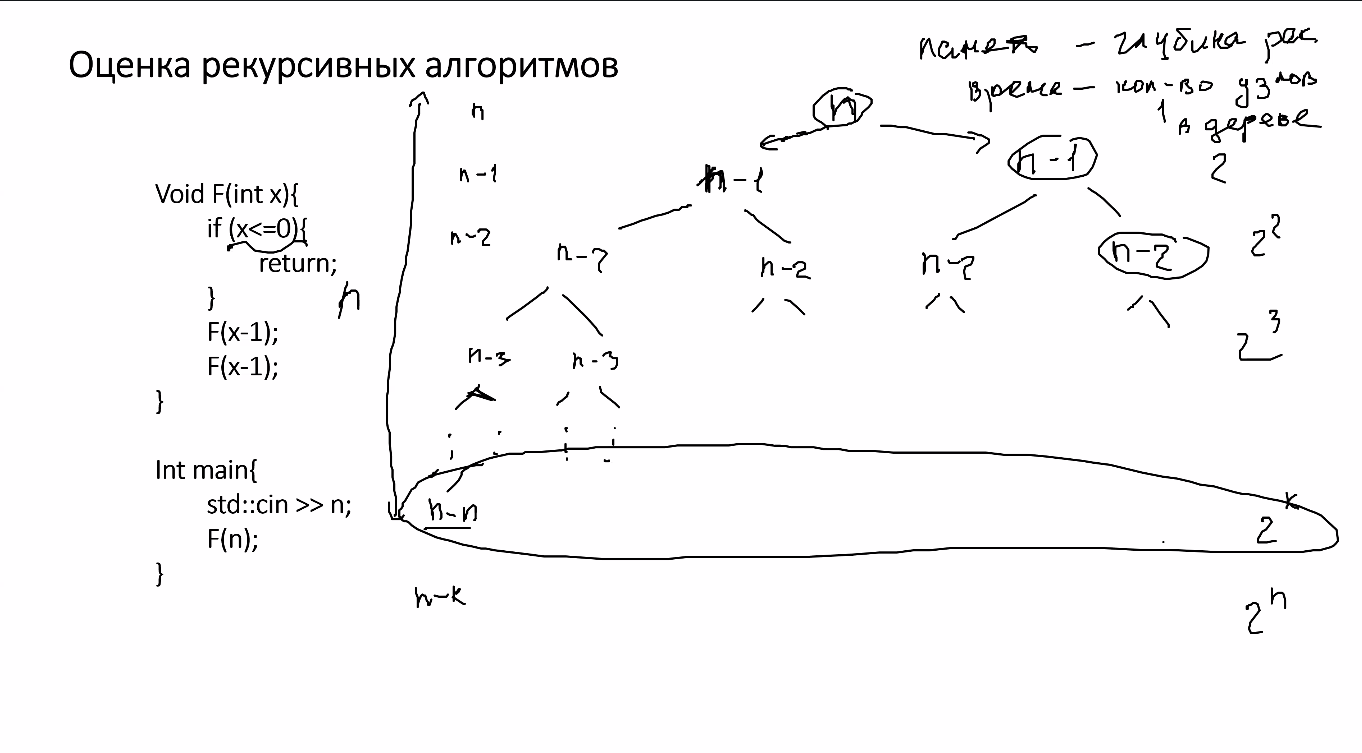 Оценка рекурсивных алгоритмов
память - глубина рек
время - кол-во узлов
в дереве
Void F(int x){
if (x<=0){
return;
}
F(x-1);
F(x-1);
}
Int main{
std::cin >> n;
F(n);
}
n
n
n-1
n-2
n
1
n-1
n-1
2
n-2
n-2
n-2
n-2
2²
n-3
n-3
2³
n-n
2ᵏ
n-k
2ⁿ